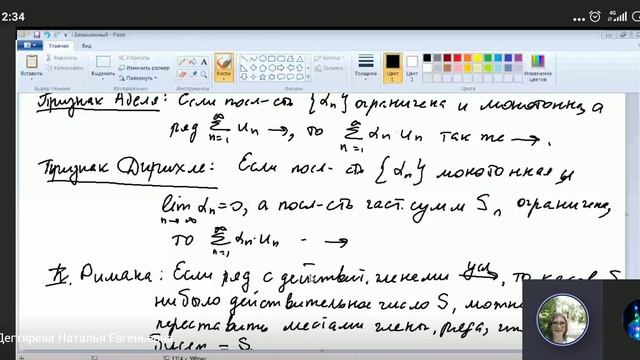 2:34
4G
Безымянный - Paint
Главная Вид
Вставить
Выделить
Обрезать
Изменить размер
Повернуть
Кисти
Контур
Заливка
Толщина
Цвет 1
Цвет 2
Изменение цветов
Буфер обмена Изображение Инструменты Фигуры Цвета
Признак Абеля: Если посл-сть {αn} ограничена и монотонна, а
ряд ∑ n=1 ∞ un →, то ∑ n=1 ∞ αn un так же →.
Признак Дирихле: Если посл-сть {αn} монотонная и
lim n→∞ αn = 0, а посл-сть част. сумм Sn ограничена,
то ∑ n=1 ∞ αn·un - →
Римана: Если ряд с действ. членами усл →, то каков
нибыло действительное число S, можн
переставить местами члены ряда,
= S
Дегтярева Наталья Евгеньевна